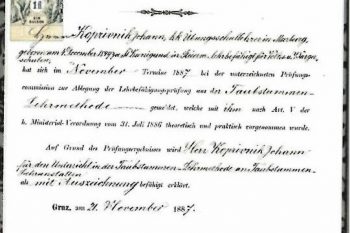 Herrn Koprivnik Johann, k.k. Übungsschullehrer in Marburg,
geboren am in St. Kunigund in Steierm. lehrbefähigt für Volks u. Bürger
schulen,
hat sich im November - Termine 1887 bei der unterzeichneten Prüfungs-
commission zur Ablegung der Lehrbefähigungsprüfung aus der Taubstummen-
Lehrmethode gemeldet, welche mit ihm nach Art. V der
h. Ministerial-Verordnung vom 31. Juli 1886 theoretisch und praktisch vorgenommen wurde.
Auf Grund des Prüfungsergebnisses wird Herr Koprivnik Johann
für den Unterricht in der Taubstummen-Lehrmethode an Taubstummen-
Lehranstalten
als mit Auszeichnung befähigt erklärt.
Graz, am 21. November 1887.